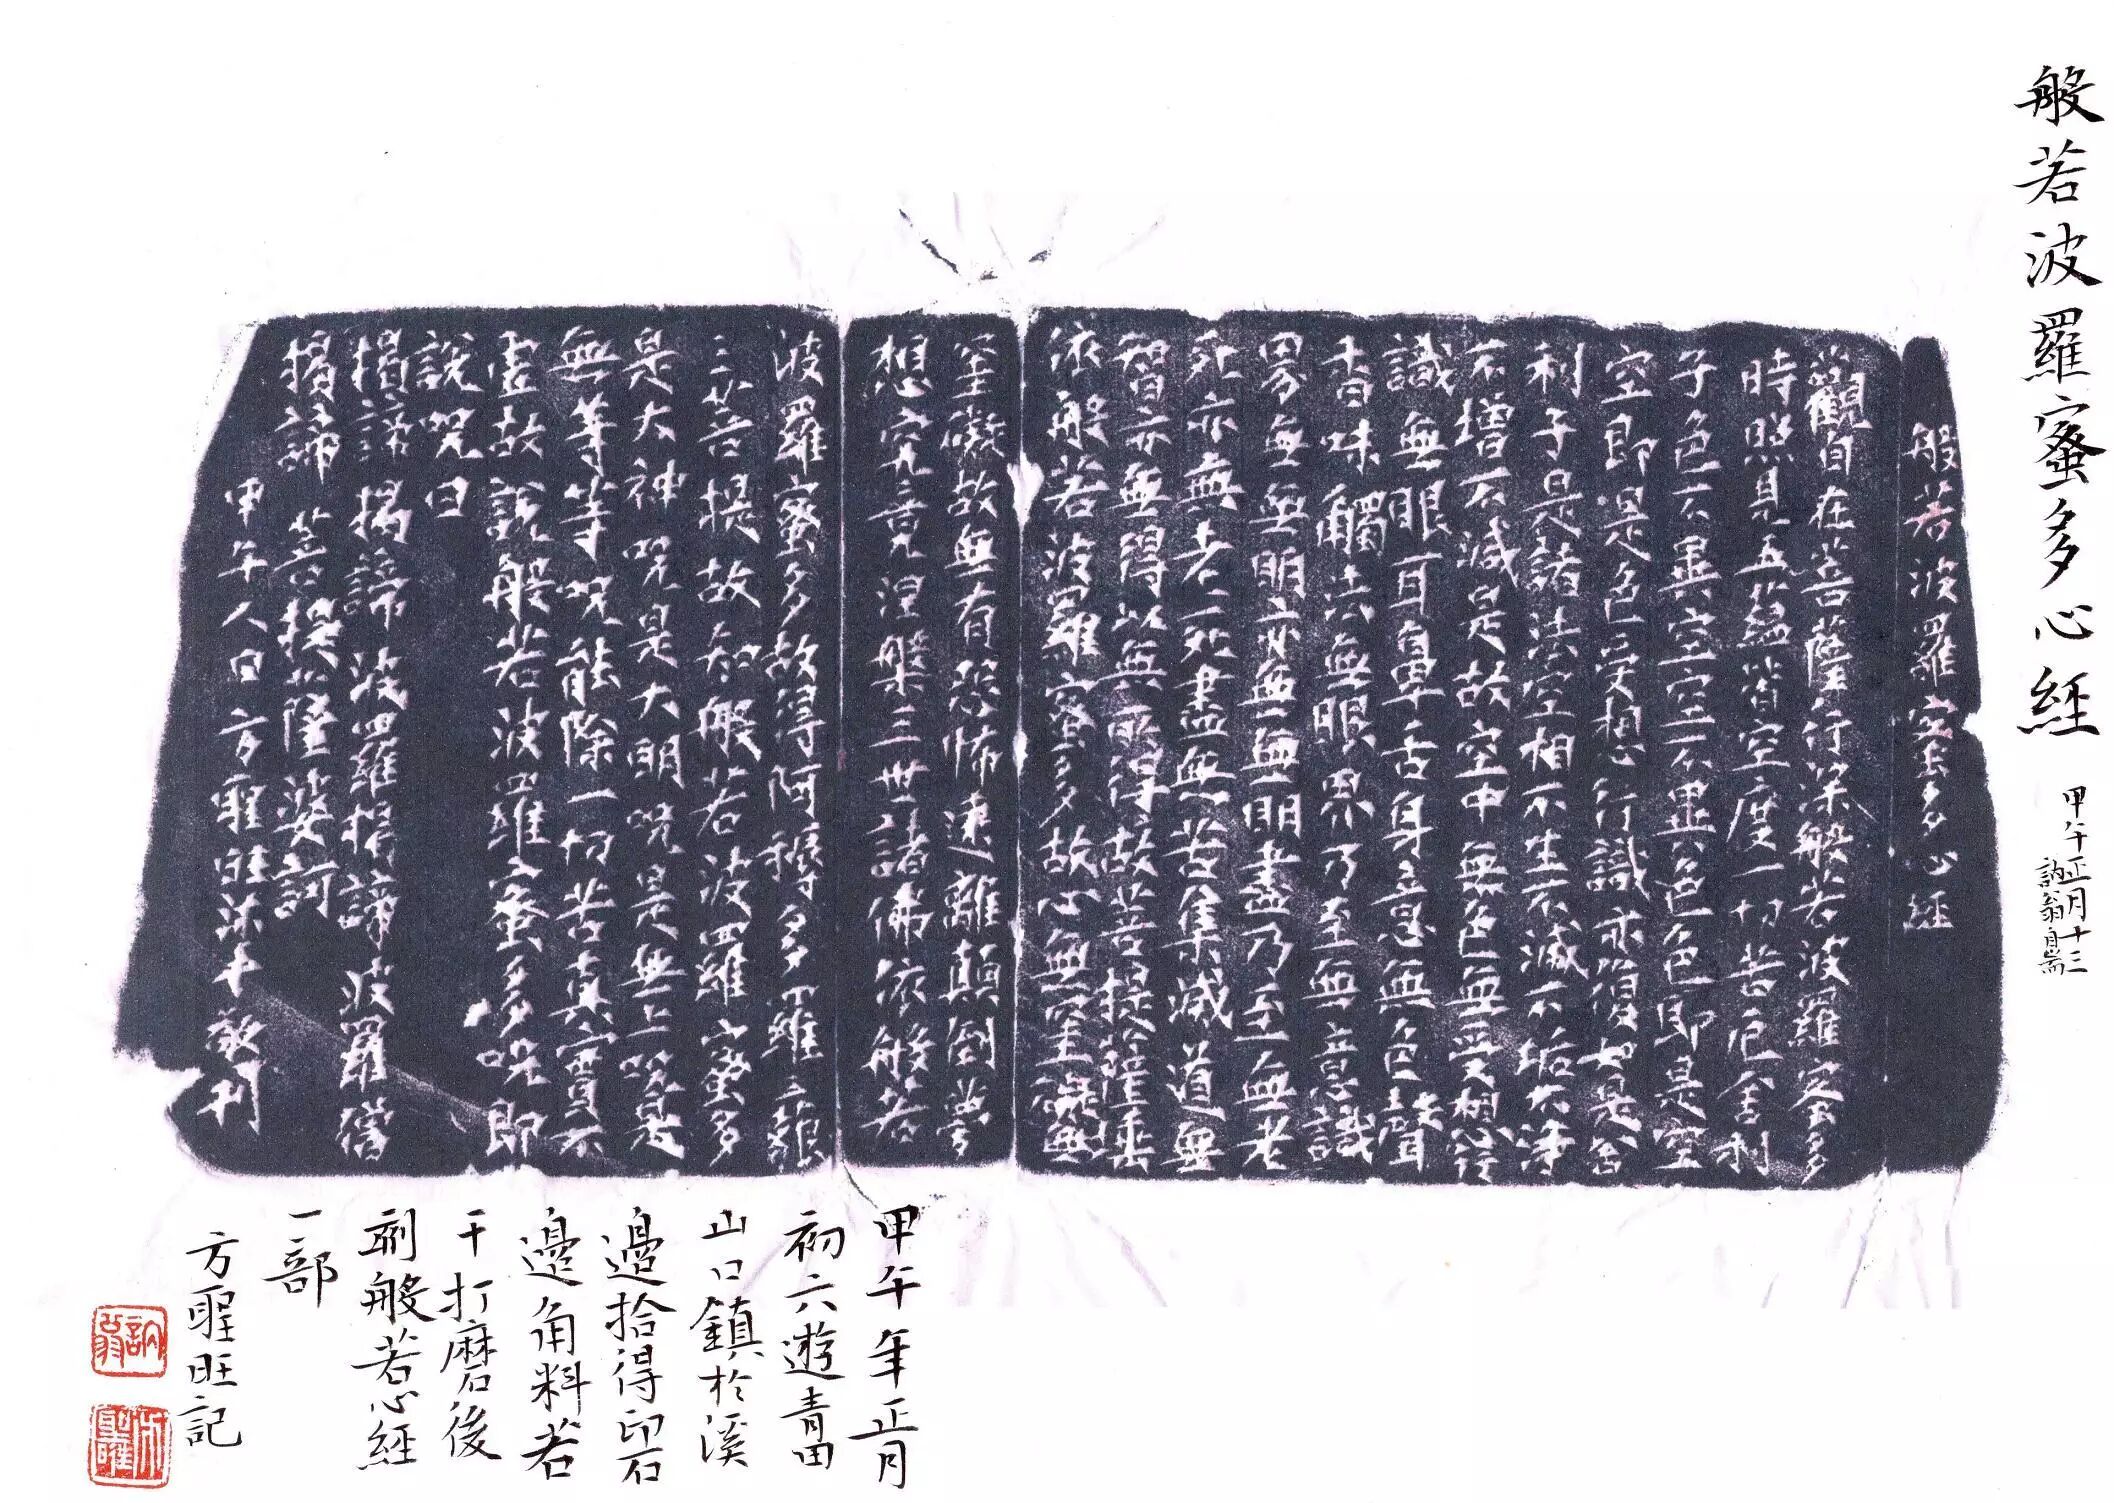 般若波羅蜜多心經
甲午正月十三
訥翁自耑
般若波羅蜜多心經
觀自在菩薩行深般若波羅蜜多
時照見五蘊皆空度一切苦厄舍利
子色不異空空不異色色即是空
空即是色受想行識亦復如是舍
利子是諸法空相不生不滅不垢不淨
不增不減是故空中無色無受想行
識無眼耳鼻舌身意無色聲
香味觸法無眼界乃至無意識
界無無明亦無無明盡乃至無老
死亦無老死盡無苦集滅道無
智亦無得以無所得故菩提薩埵
依般若波羅蜜多故心無罣礙無
罣礙故無有恐怖遠離顛倒夢
想究竟涅槃三世諸佛依般若
波羅蜜多故得阿耨多羅三藐
三菩提故知般若波羅蜜多
是大神呪是大明呪是無上呪是
無等等呪能除一切苦真實不
虛故說般若波羅蜜多呪即
說呪曰
揭諦揭諦波羅揭諦波羅僧
揭諦菩提薩婆訶
甲午人日方聖旺沐手敬刊
甲午年正月
初六遊青田
山口鎮於溪
邊拾得印石
邊角料若
干打磨後
刻般若心經
一部
方聖旺記
訥翁